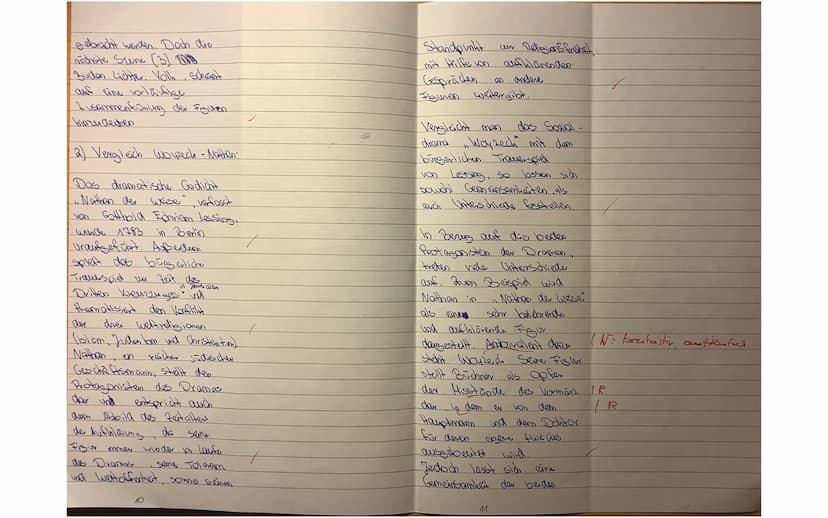 gebracht werden. Doch die
nächste Szene (3)
Buden Lichter Volk, scheint
auf eine vorläufige
Zusammenführung der Figuren
hinzudeuten
2) Vergleich Woyzeck - Nathan:
Das dramatische Gedicht
„Nathan der Weise", verfasst
von Gotthold Ephraim Lessing,
wurde 1783 in Berlin
uraufgeführt. Außerdem
spielt das bürgerliche
Trauerspiel zur Zeit des
Dritten Kreuzzuges in Jerusalem und
thematisiert den Konflikt
der drei Weltreligionen
(Islam, Judentum und Christentum)
Nathan, ein reicher jüdischer
Geschäftsmann, stellt den
Protagonisten des Dramas
dar und entspricht auch
dem Abbild des Zeitalters
der Aufklärung, da seine
Figur immer wieder im Laufe
des Dramas, seine Toleranz
und Weltoffenheit, sowie seinen
10
Standpunkt zur Religionsfreiheit,
mit Hilfe von aufklärenden
Gesprächen an andere
Figuren weitergibt.
Vergleicht man das Sozial-
drama „Woyzeck" mit dem
bürgerlichen Trauerspiel
von Lessing, so lassen sich
sowohl Gemeinsamkeiten, als
auch Unterschiede feststellen.
In Bezug auf die beiden
Protagonisten der Dramen,
treten viele Unterschiede
auf. Zum Beispiel wird
Nathan in „Nathan der Weise"
als eine sehr belehrende
und aufklärende Figur
dargestellt. Ambivalent dazu
steht Woyzeck. Seine Figur
stellt Büchner als Opfer
der Missstände des Vormärz
dar, in dem er von dem
Hauptmann und dem Doktor
für deren eigene Zwecke
ausgebeutet wird.
Jedoch lässt sich eine
Gemeinsamkeit der beiden
11
R
R